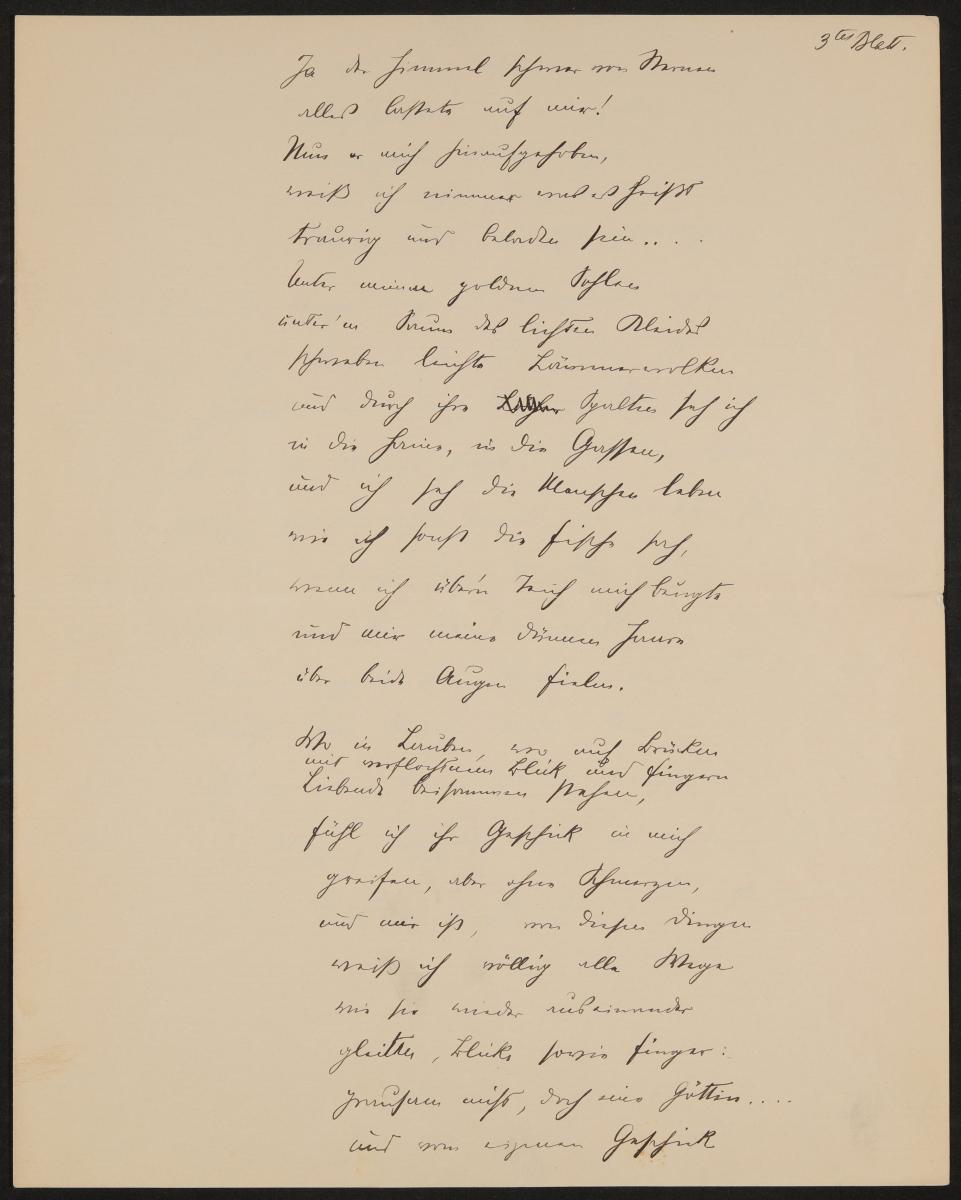 3tes Blatt.
Ja der Himmel schwer von Sternen
alles lastete auf mir!
Nun er mich hinaufgehoben,
weiß ich nimmer was es heißt
traurig und beladen sein....
Unter meinen goldnen Sohlen
unter'm Saum des lichten Kleides
schweben leichte Lämmerwolken
und durch ihre Spalten seh ich
in die Haine, in die Gassen,
und ich seh die Menschen leben
wie ich sonst die Fische sah,
wenn ich über'n Teich mich beugte
und mir meine dünnen Haare
über beide Augen fielen.
Wo in Lauben, wo auf Brücken
mit verflochtenen Blick und Fingern
Liebende beisammen stehen,
fühl ich ihr Geschick in mich
greifen, aber ohne Schmerzen,
und mir ist, von diesen Dingen
weiß ich völlig alle Wege
wie sie wieder auseinander
gleiten, Blicke sowie Finger:
grausam nicht, doch eine Göttin....
und vom eigenen Geschick